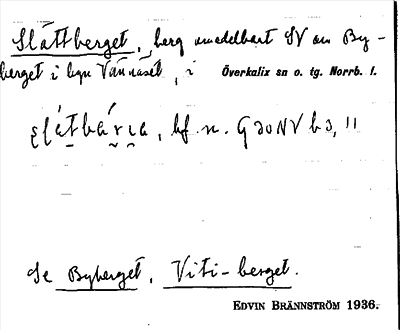 Slåttberget, berg omedelbart SV om By-
berget i byn Vännäset, i Överkalix sn o. tg. Norrb. l.
bf. n. G 30 NV b 3, 11
Se Byberget, Viti-berget.
EDVIN BRÄNNSTRÖM 1936.